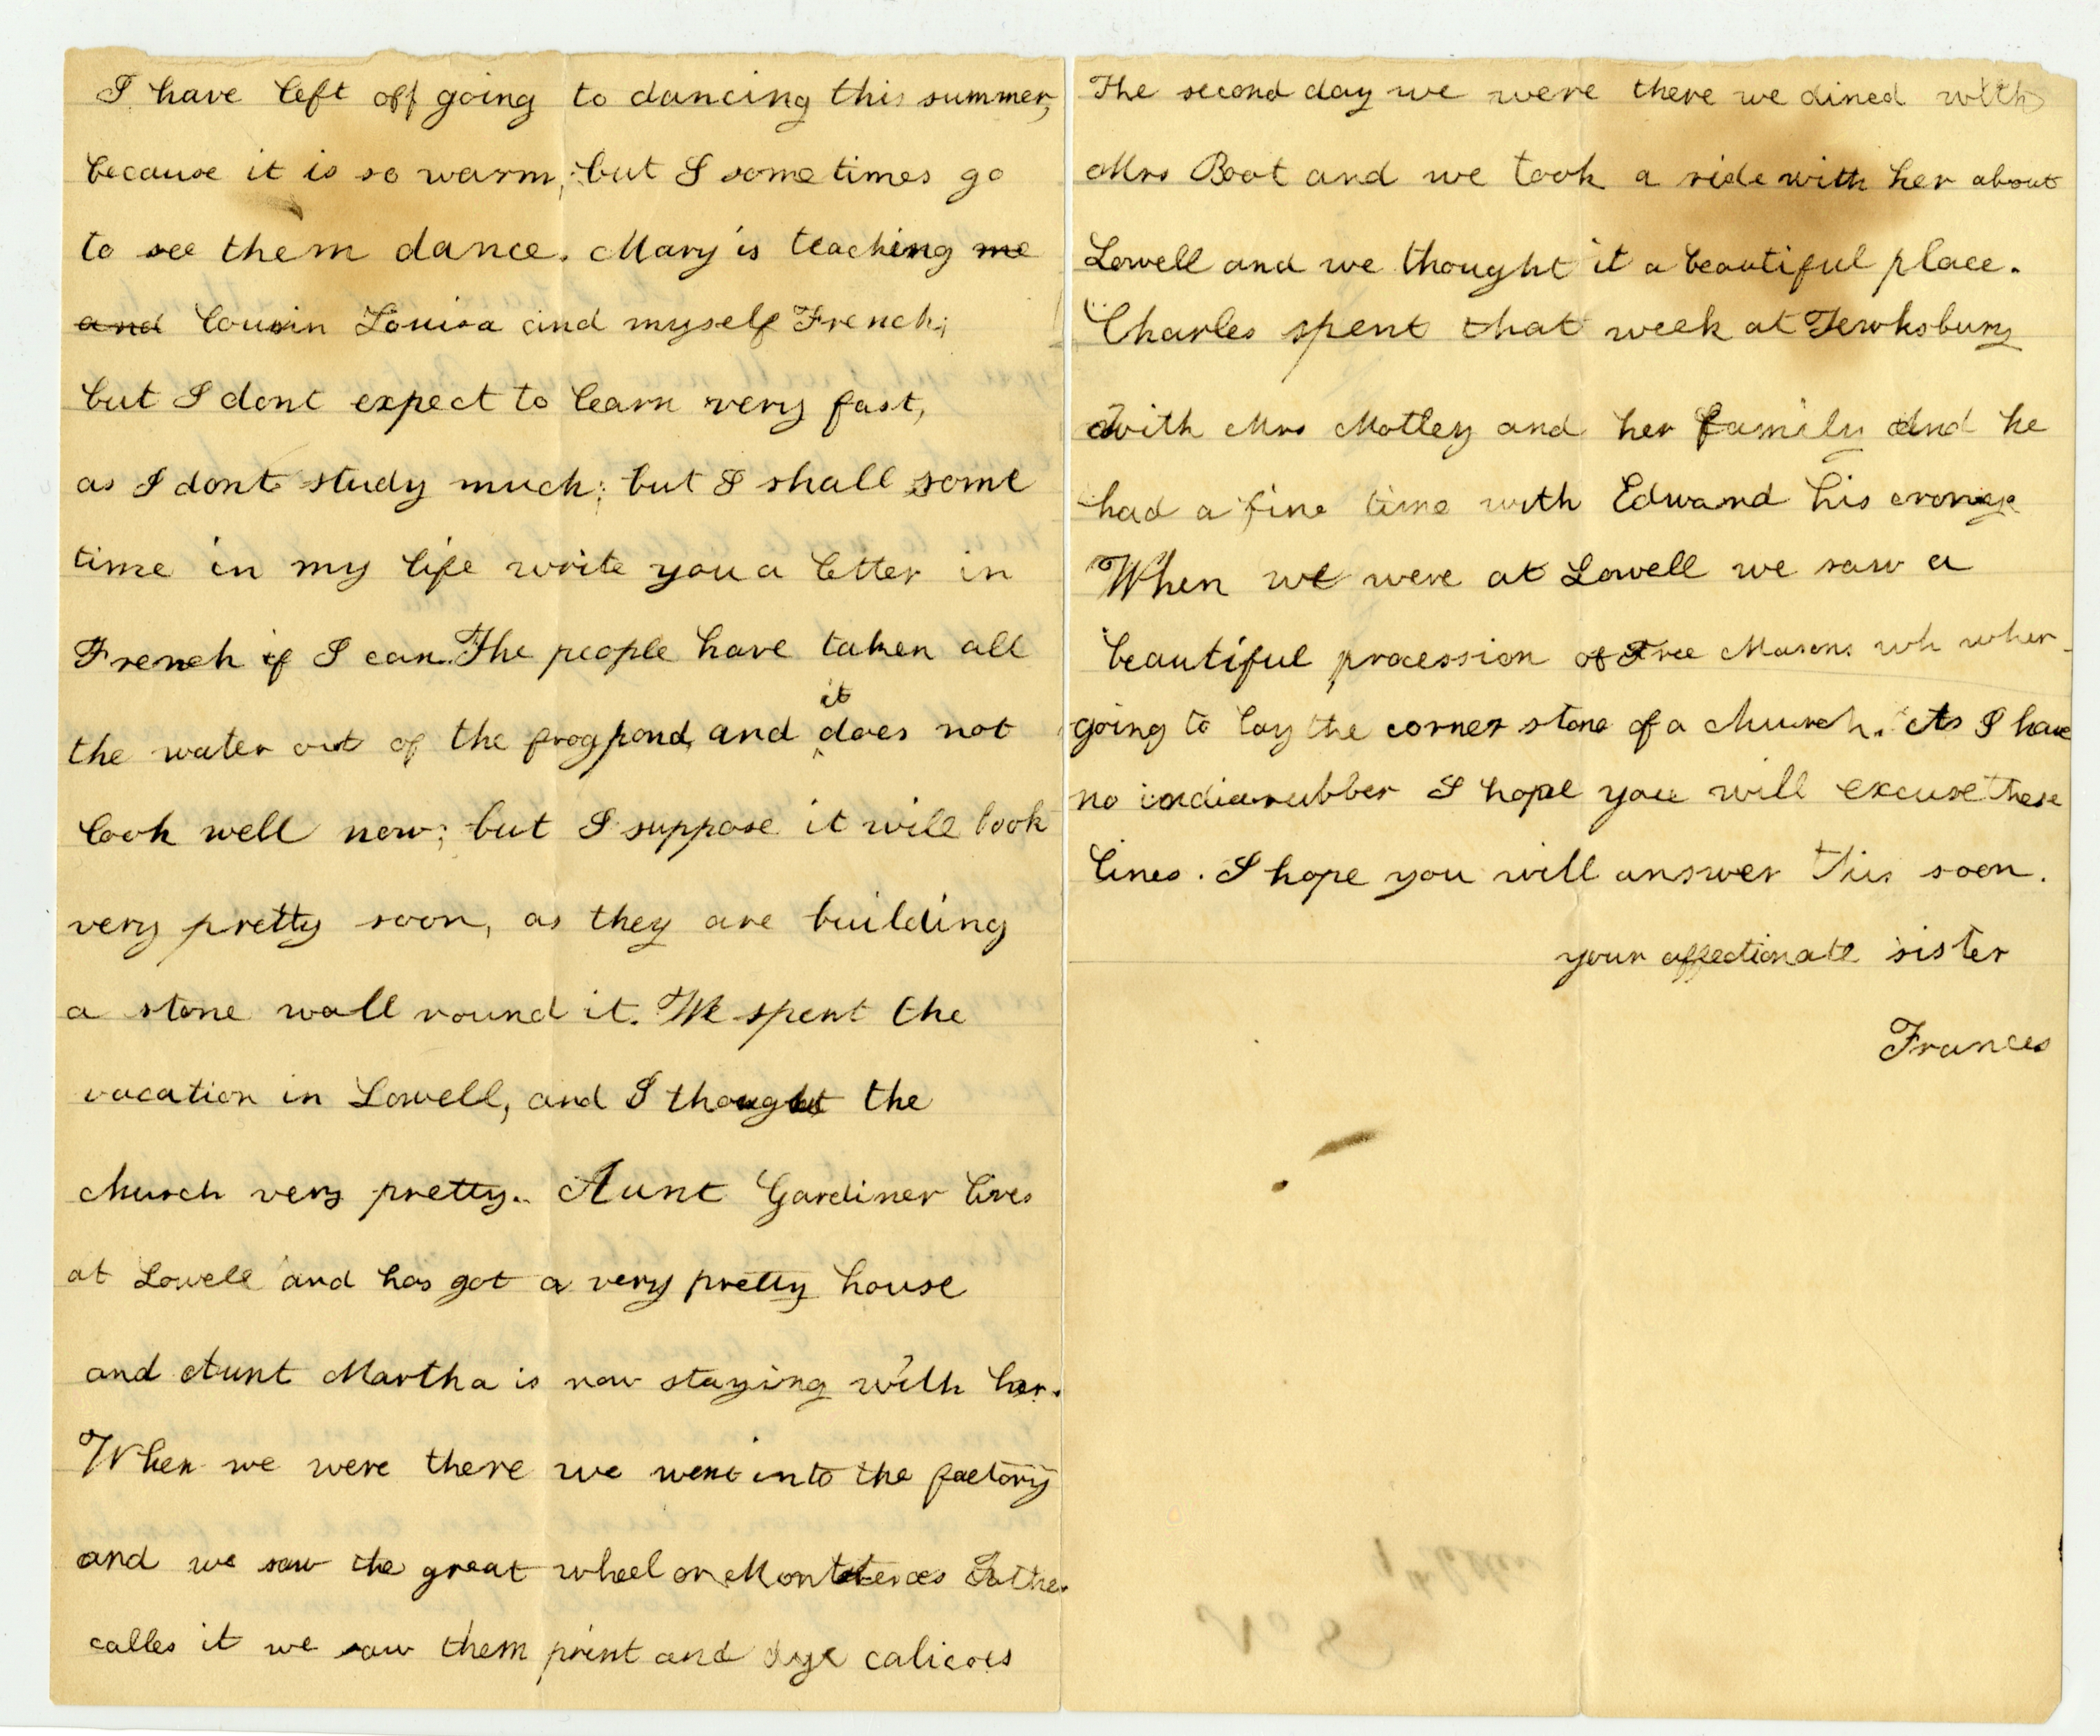 I have left off going to dancing this summer,
because it is so warm; but I some times go
to see them dance. Mary is teaching me
and Cousin Louisa and myself French;
but I dont expect to learn very fast,
as I dont study much; but I shall some
time in my life write you a letter in
French if I can. The people have taken all
it
the water out of the frog pond, and does not
look well now; but I suppose it will look
very pretty soon, as they are building
a stone wall round it. We spent the
vacation in Lowell, and I thought the
church very pretty. Aunt Gardiner lives
at Lowell and has got a very pretty house
and Aunt Martha is now staying with her.
When we were there we went into the factory
and we saw the great wheel or as Father
calles it we saw them print and dye calicoes
The second day we were there we dined with
Mrs Boot and we took a ride with her about
Lowell and we thought it a beautiful place.
Charles spent that week at Tewksbury
with Mrs Motley and her family And he
had a fine time with Edward his crony
When we were at Lowell we saw a
beautiful procession of Free Masons wh wher
going to lay the corner stone of a church. As I have
no indiarubber I hope you will excuse these
lines. I hope you will answer this soon.
your affectionate sister
Frances